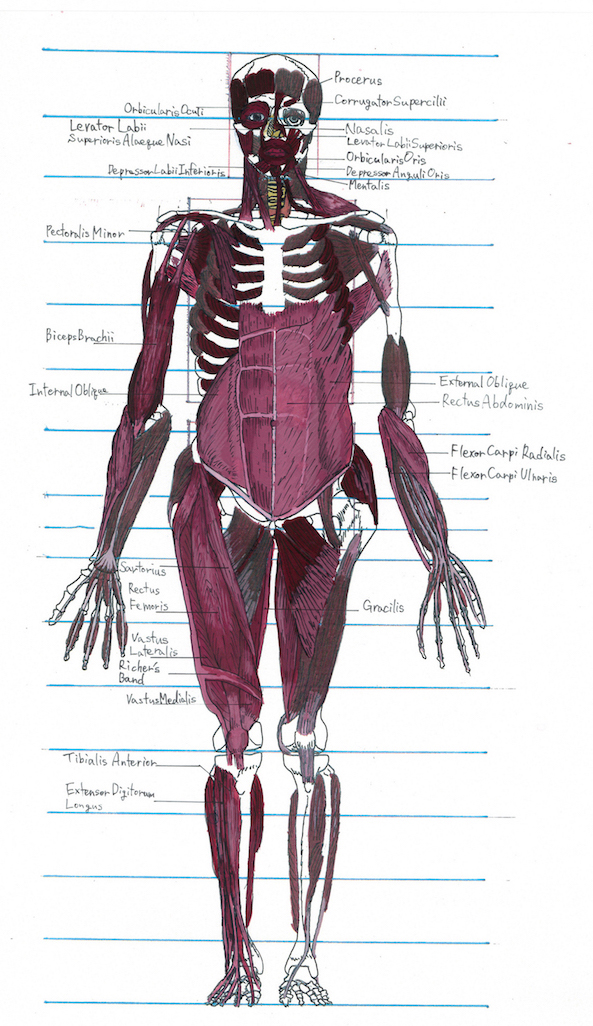 Procerus
Corrugator Supercilii
Orbicularis Oculi
Levator Labii
Superioris Alaeque Nasi
Nasalis
Levator Labii Superioris
Orbicularis Oris
Depressor Labii Inferioris
Depressor Anguli Oris
Mentalis
Pectoralis Minor
Biceps Brachii
Internal Oblique
External Oblique
Rectus Abdominis
Flexor Carpi Radialis
Flexor Carpi Ulnaris
Sartorius
Rectus
Femoris
Gracilis
Vastus
Lateralis
Richer's
Band
Vastus Medialis
Tibialis Anterior
Extensor Digitorum
Longus